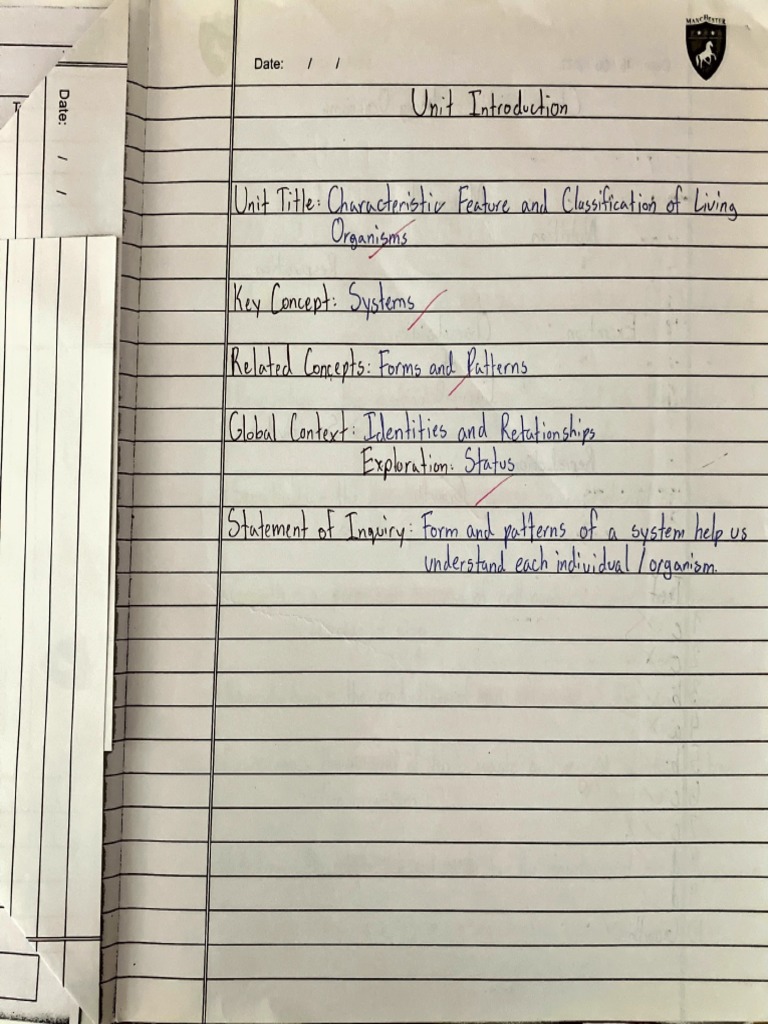 MANCHESTER
Date: / /
Date: / /
Unit Introduction
Unit Title: Characteristic Feature and Classification of Living
Organisms
Key Concept: Systems
Related Concepts: Forms and Patterns
Global Context: Identities and Relationships
Exploration: Status
Statement of Inquiry: Form and patterns of a system help us
understand each individual / organism.